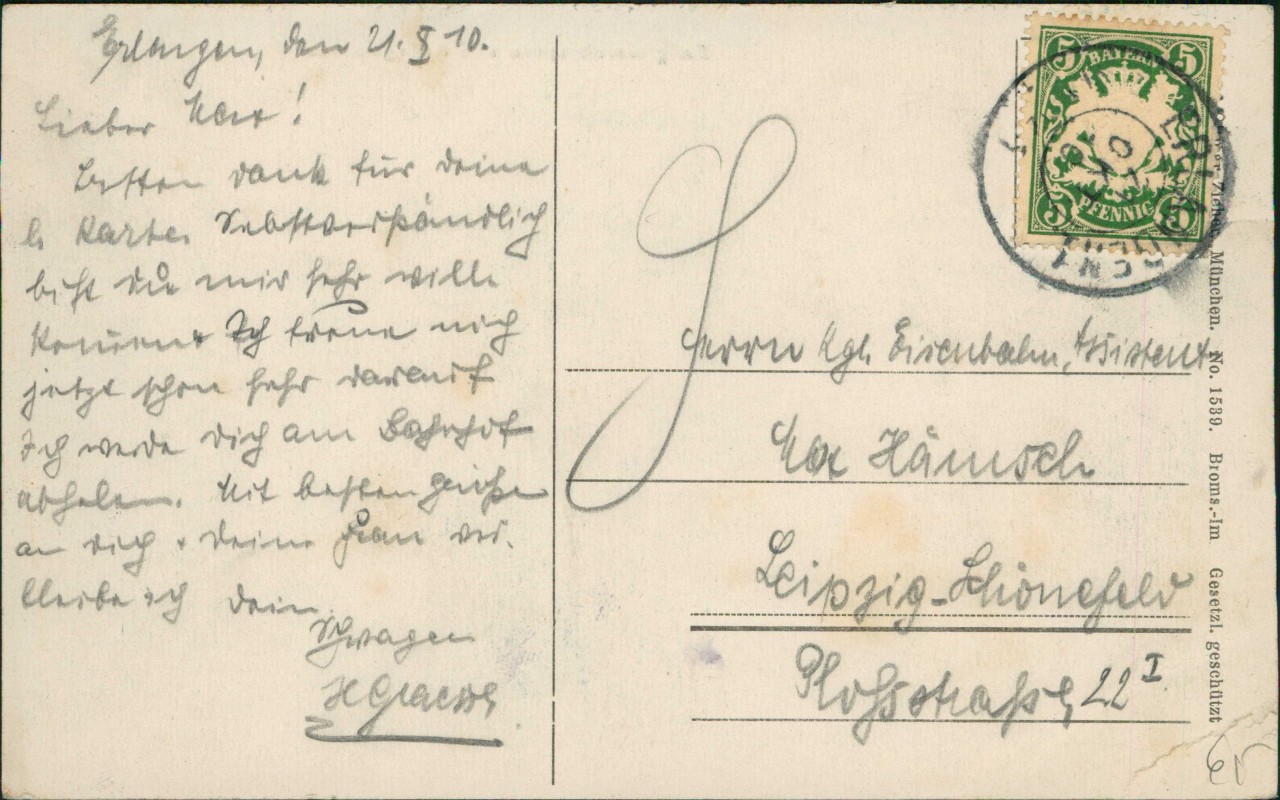 Erlangen, den 21. X 10.
Lieber Max!
Besten Dank für deine
l. Karte. Selbstverständlich
bist du mir sehr will-
kommen. Ich freue mich
jetzt schon sehr darauf
Ich werde dich am Bahnhof
abholen. Mit besten Grüßen
an dich + deine Frau ver-
bleibe ich dein
Schwager
BAYERN
5 5
PFENNIG
5 5
ERLANGEN 1
Herrn Kgl. Eisenbahn, Assistent
Max Hämsch
Leipzig-Schönefeld
Ploßstraße 22 I
München. No. 1539. Broms.-Im Gesetzl. geschützt